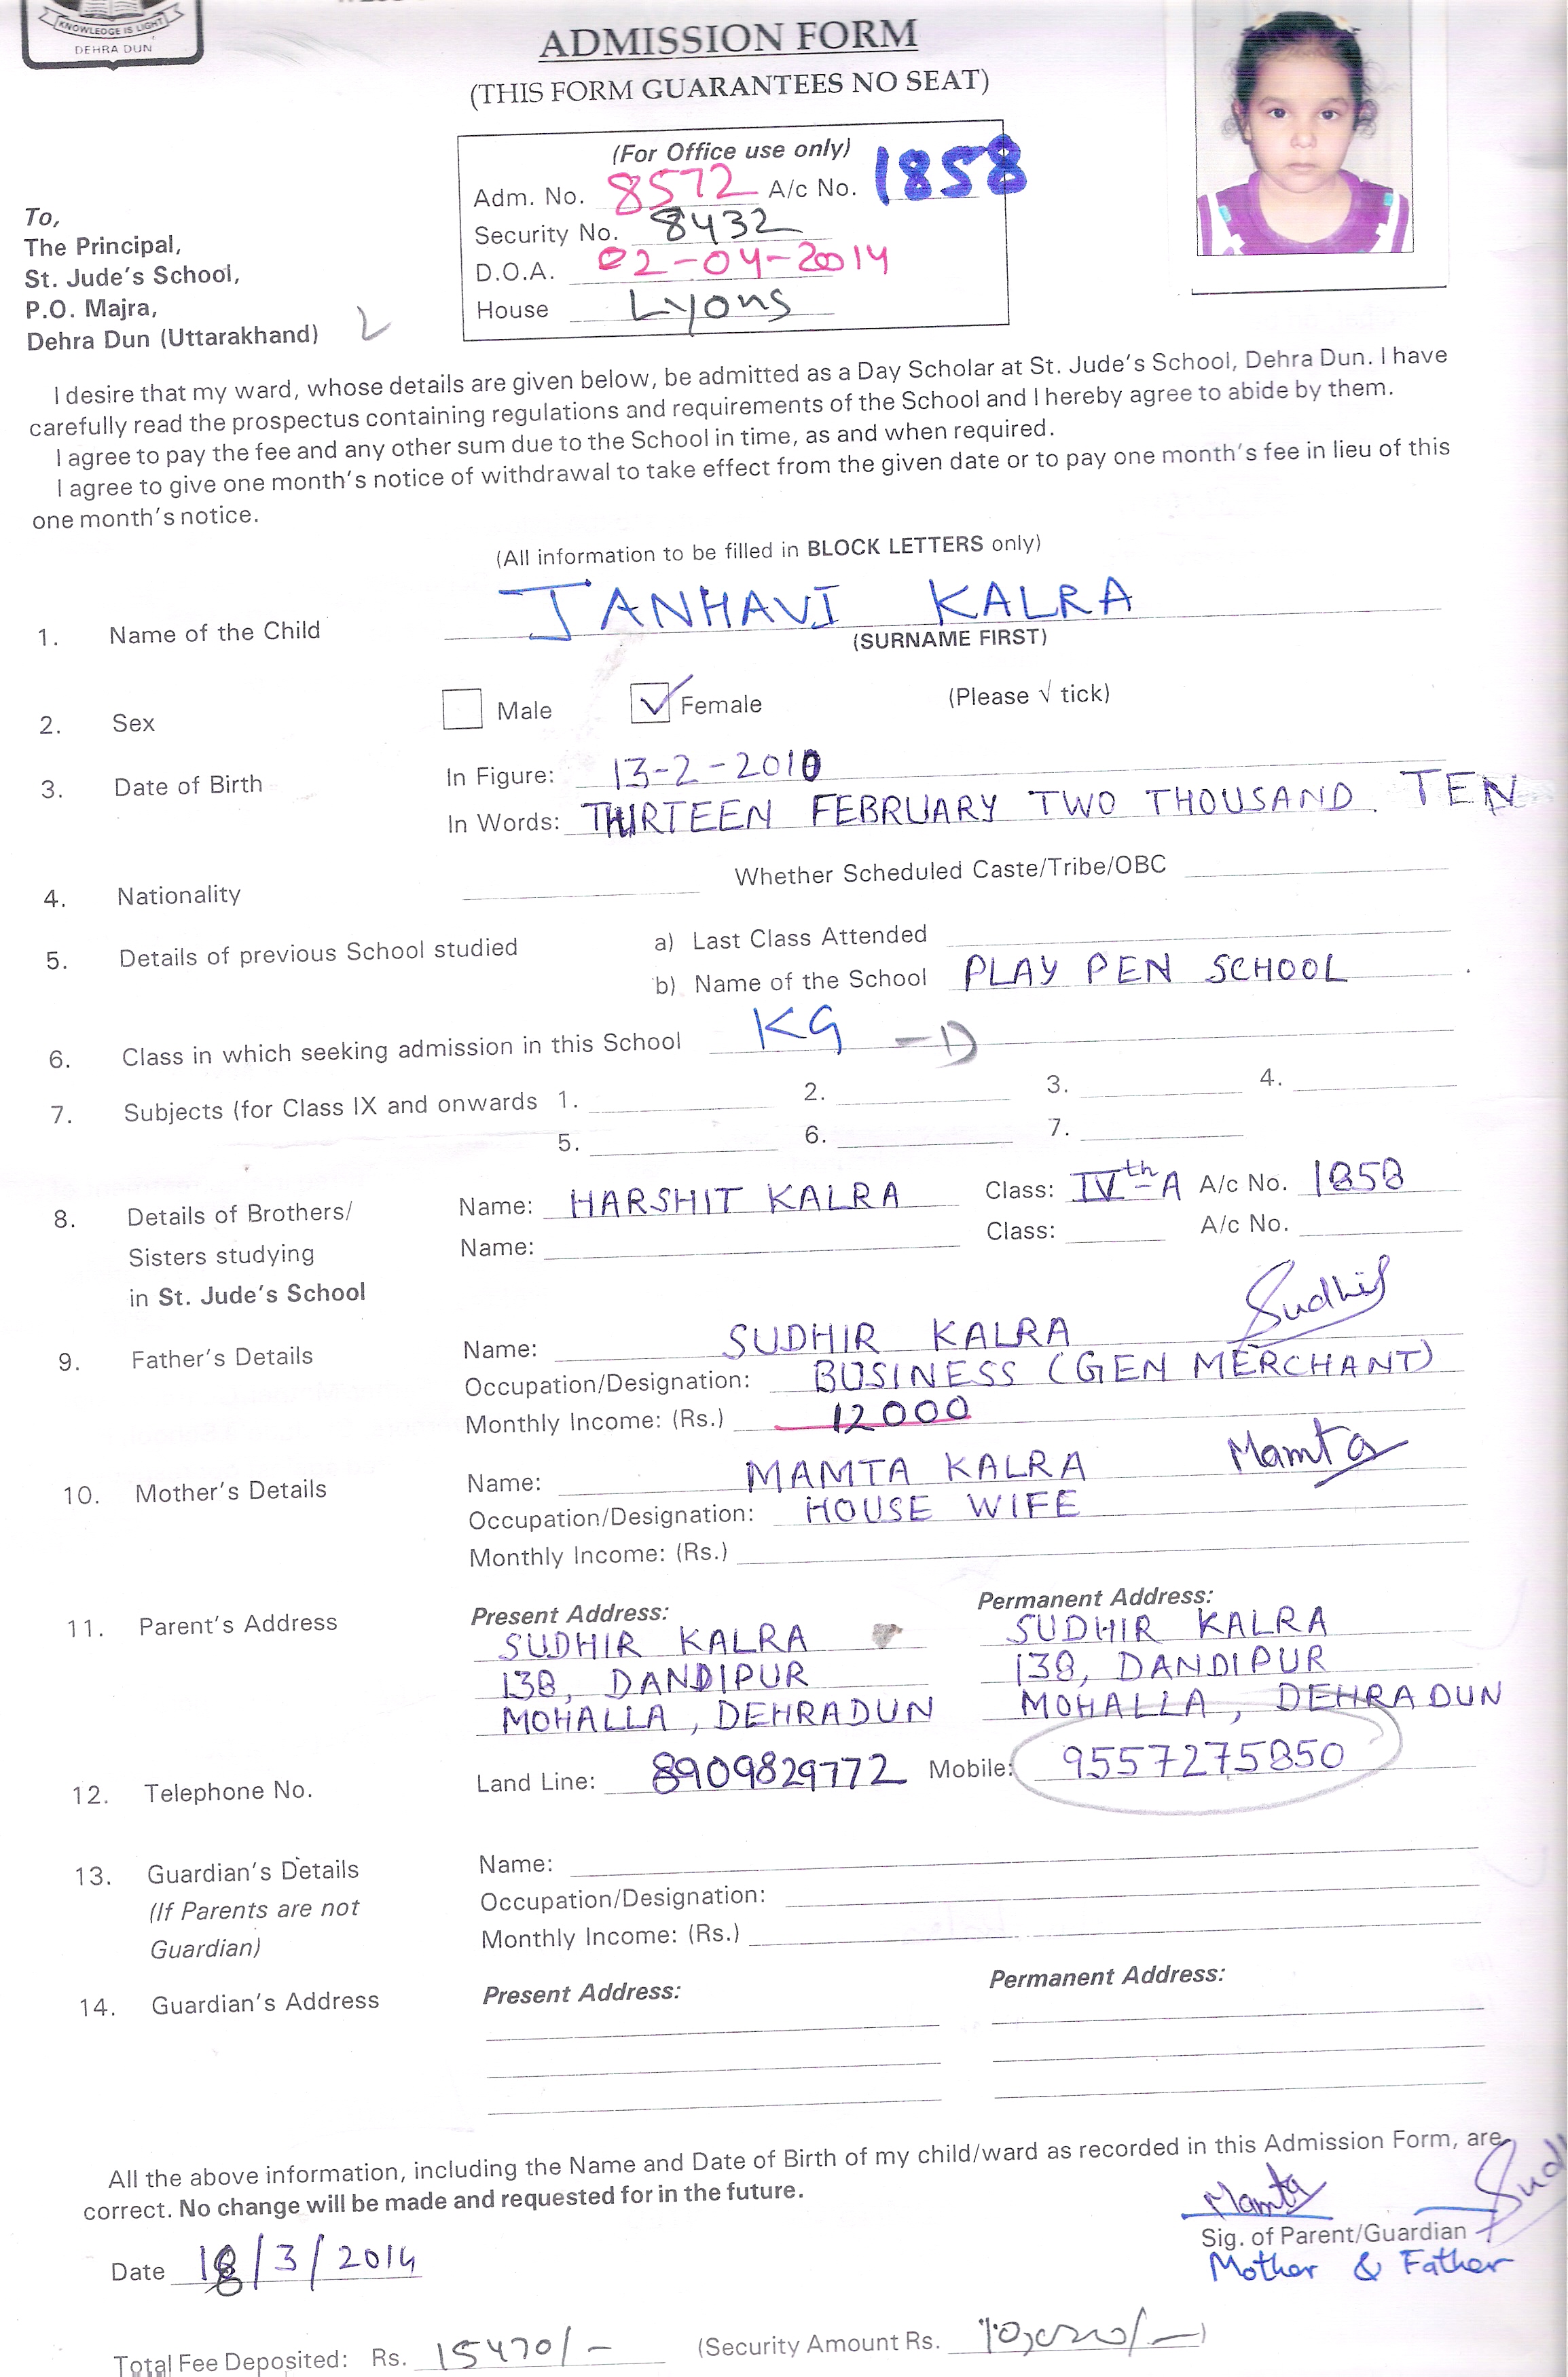 KNOWLEDGE IS LIGHT
DEHRA DUN
ADMISSION FORM
(THIS FORM GUARANTEES NO SEAT)
(For Office use only)
Adm. No. 8572 A/c No. 1858
Security No. 8432
D.O.A. 02-04-2014
House Lyons
To,
The Principal,
St. Jude's School,
P.O. Majra,
Dehra Dun (Uttarakhand)
I desire that my ward, whose details are given below, be admitted as a Day Scholar at St. Jude's School, Dehra Dun. I have
carefully read the prospectus containing regulations and requirements of the School and I hereby agree to abide by them.
I agree to pay the fee and any other sum due to the School in time, as and when required.
I agree to give one month's notice of withdrawal to take effect from the given date or to pay one month's fee in lieu of this
one month's notice.
(All information to be filled in BLOCK LETTERS only)
1. Name of the Child JANHAVI KALRA
(SURNAME FIRST)
2. Sex Male ✓ Female (Please √ tick)
3. Date of Birth In Figure: 13-2-2010
In Words: THIRTEEN FEBRUARY TWO THOUSAND TEN
4. Nationality Whether Scheduled Caste/Tribe/OBC
5. Details of previous School studied a) Last Class Attended
b) Name of the School PLAY PEN SCHOOL
6. Class in which seeking admission in this School KG - D
7. Subjects (for Class IX and onwards 1. 2. 3. 4.
5. 6. 7.
8. Details of Brothers/ Name: HARSHIT KALRA Class: IVth A A/c No. 1858
Sisters studying Name: Class: A/c No.
in St. Jude's School
Sudhir
9. Father's Details Name: SUDHIR KALRA
Occupation/Designation: BUSINESS (GEN MERCHANT)
Monthly Income: (Rs.) 12000
10. Mother's Details Name: MAMTA KALRA Mamta
Occupation/Designation: HOUSE WIFE
Monthly Income: (Rs.)
11. Parent's Address Present Address: Permanent Address:
SUDHIR KALRA SUDHIR KALRA
138, DANDIPUR 138, DANDIPUR
MOHALLA, DEHRADUN MOHALLA, DEHRADUN
12. Telephone No. Land Line: 8909829772 Mobile: 9557275850
13. Guardian's Details Name:
(If Parents are not Occupation/Designation:
Guardian) Monthly Income: (Rs.)
14. Guardian's Address Present Address: Permanent Address:
All the above information, including the Name and Date of Birth of my child/ward as recorded in this Admission Form, are
correct. No change will be made and requested for in the future.
Mamta Sud
Sig. of Parent/Guardian
Mother & Father
Date 18/3/2014
Total Fee Deposited: Rs. 15470/- (Security Amount Rs. 10,000/-)